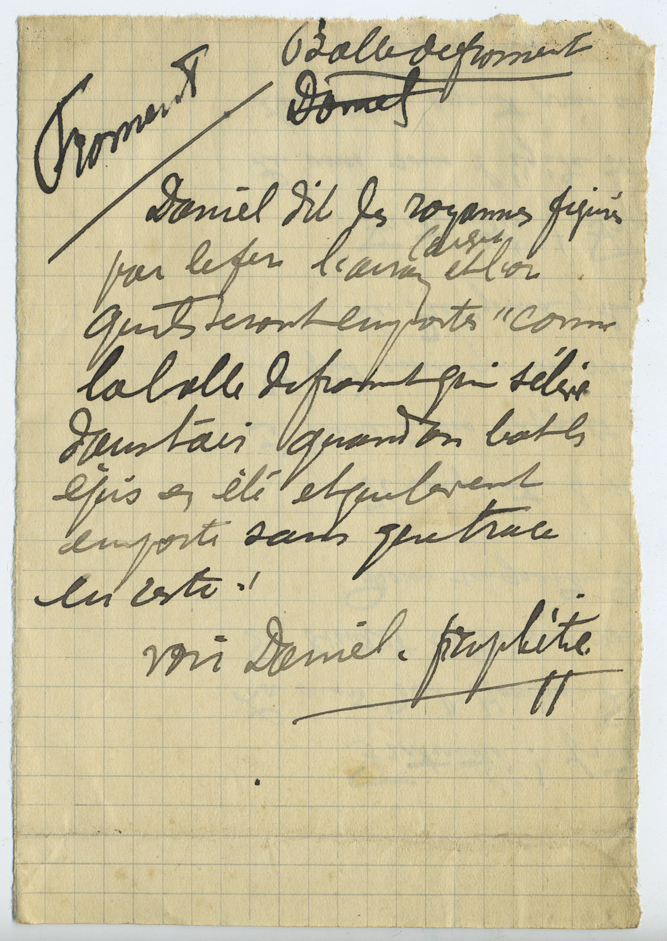 Froment
Balle de froment
Daniel
Daniel dit des royaumes figurés
par le fer l'airain l'argent et l'or
qu'ils seront emportés "comme
la balle de froment qui s'élève
dans l'air quand on bat les
épis en été et que le vent
emporte sans que trace
en reste"
voir Daniel. prophétie